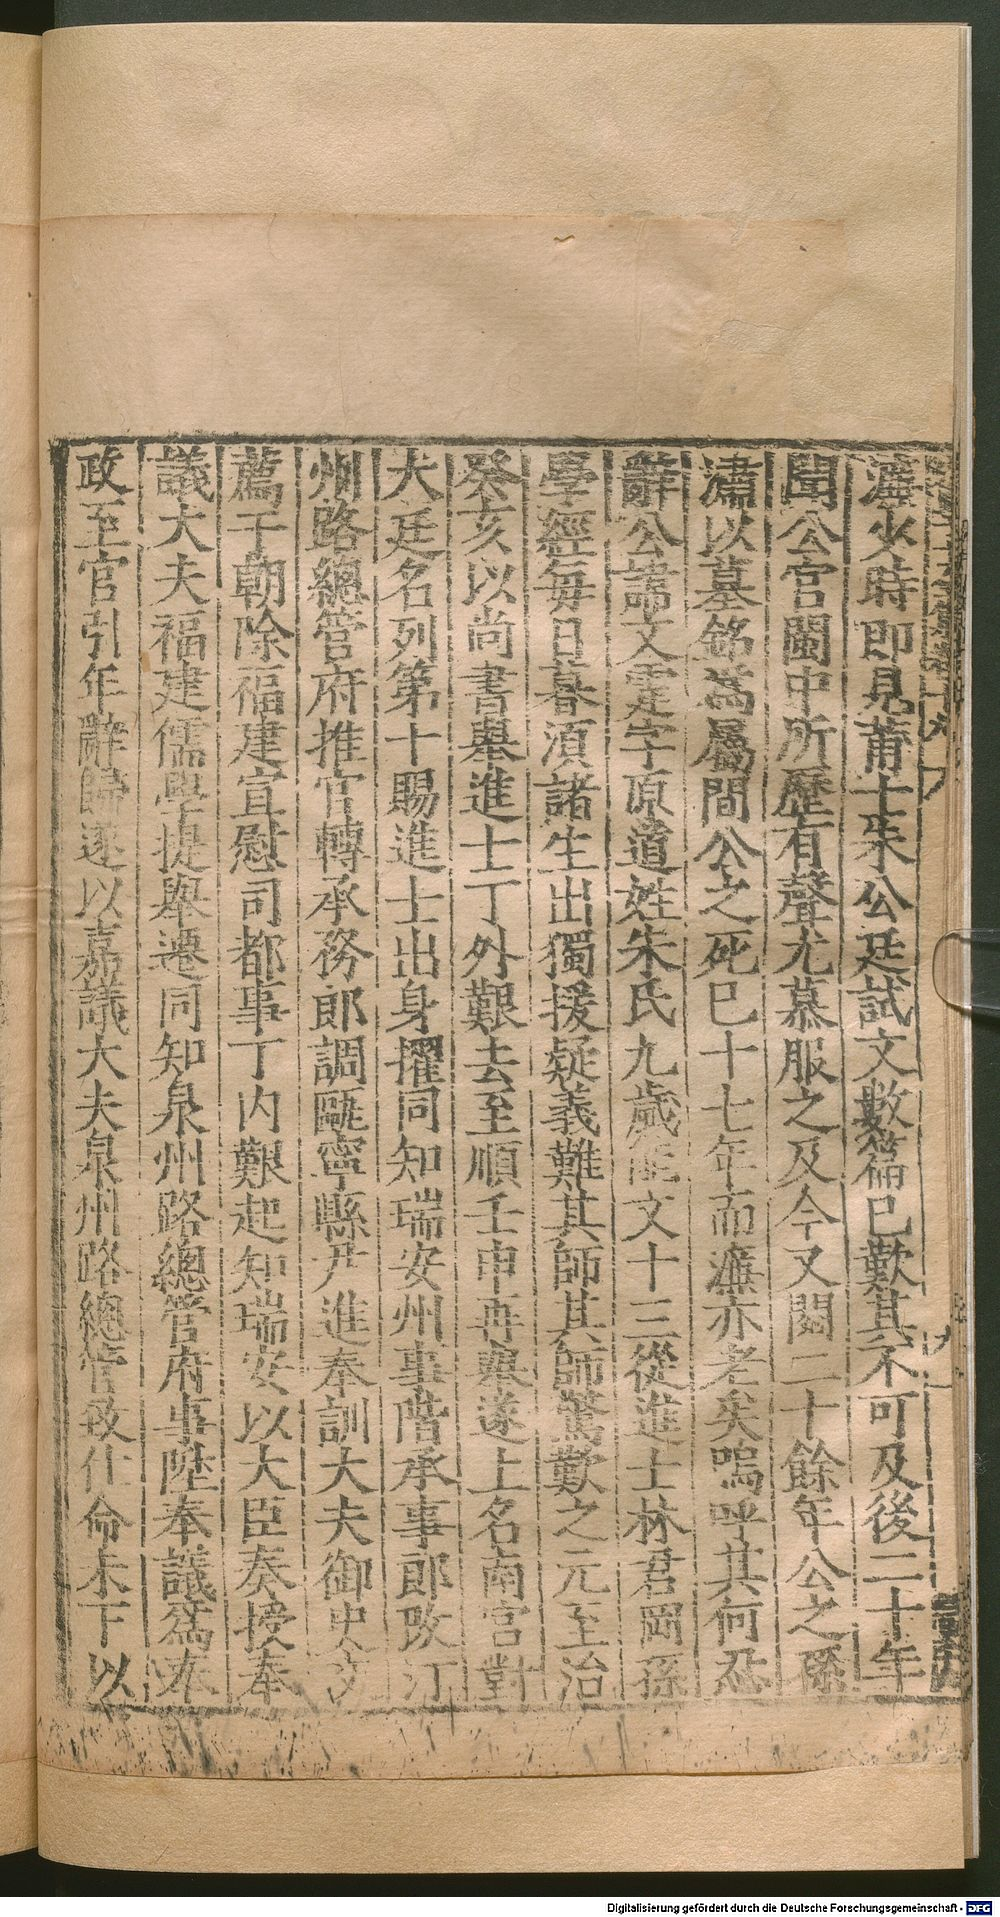 濂少時即見莆士朱公廷試文數篇已歎其不可及後二十年
聞公宦閩中所歷有聲尤慕服之及今又閱二十餘年公之孫
潚以墓銘為屬間公之死已十七年而濂亦老矣嗚呼其何忍
辭公諱文霆字原道姓朱氏九歲能文十三從進士林君岡孫
學經每日暮須諸生出獨援疑義難其師其師驚歎之元至治
癸亥以尚書舉進士丁外艱去至順壬申再舉遂上名南宮對
大廷名列第十賜進士出身擢同知瑞安州事階承事郎改汀
州路總管府推官轉承務郎調甌寧縣尹進奉訓大夫御史交
薦于朝除福建宣慰司都事丁內艱起知瑞安以大臣奏授奉
議大夫福建儒學提舉遷同知泉州路總管府事陞奉議為奉
政至官引年辭歸遂以嘉議大夫泉州路總管致仕命未下以
Digitalisierung gefördert durch die Deutsche Forschungsgemeinschaft - DFG